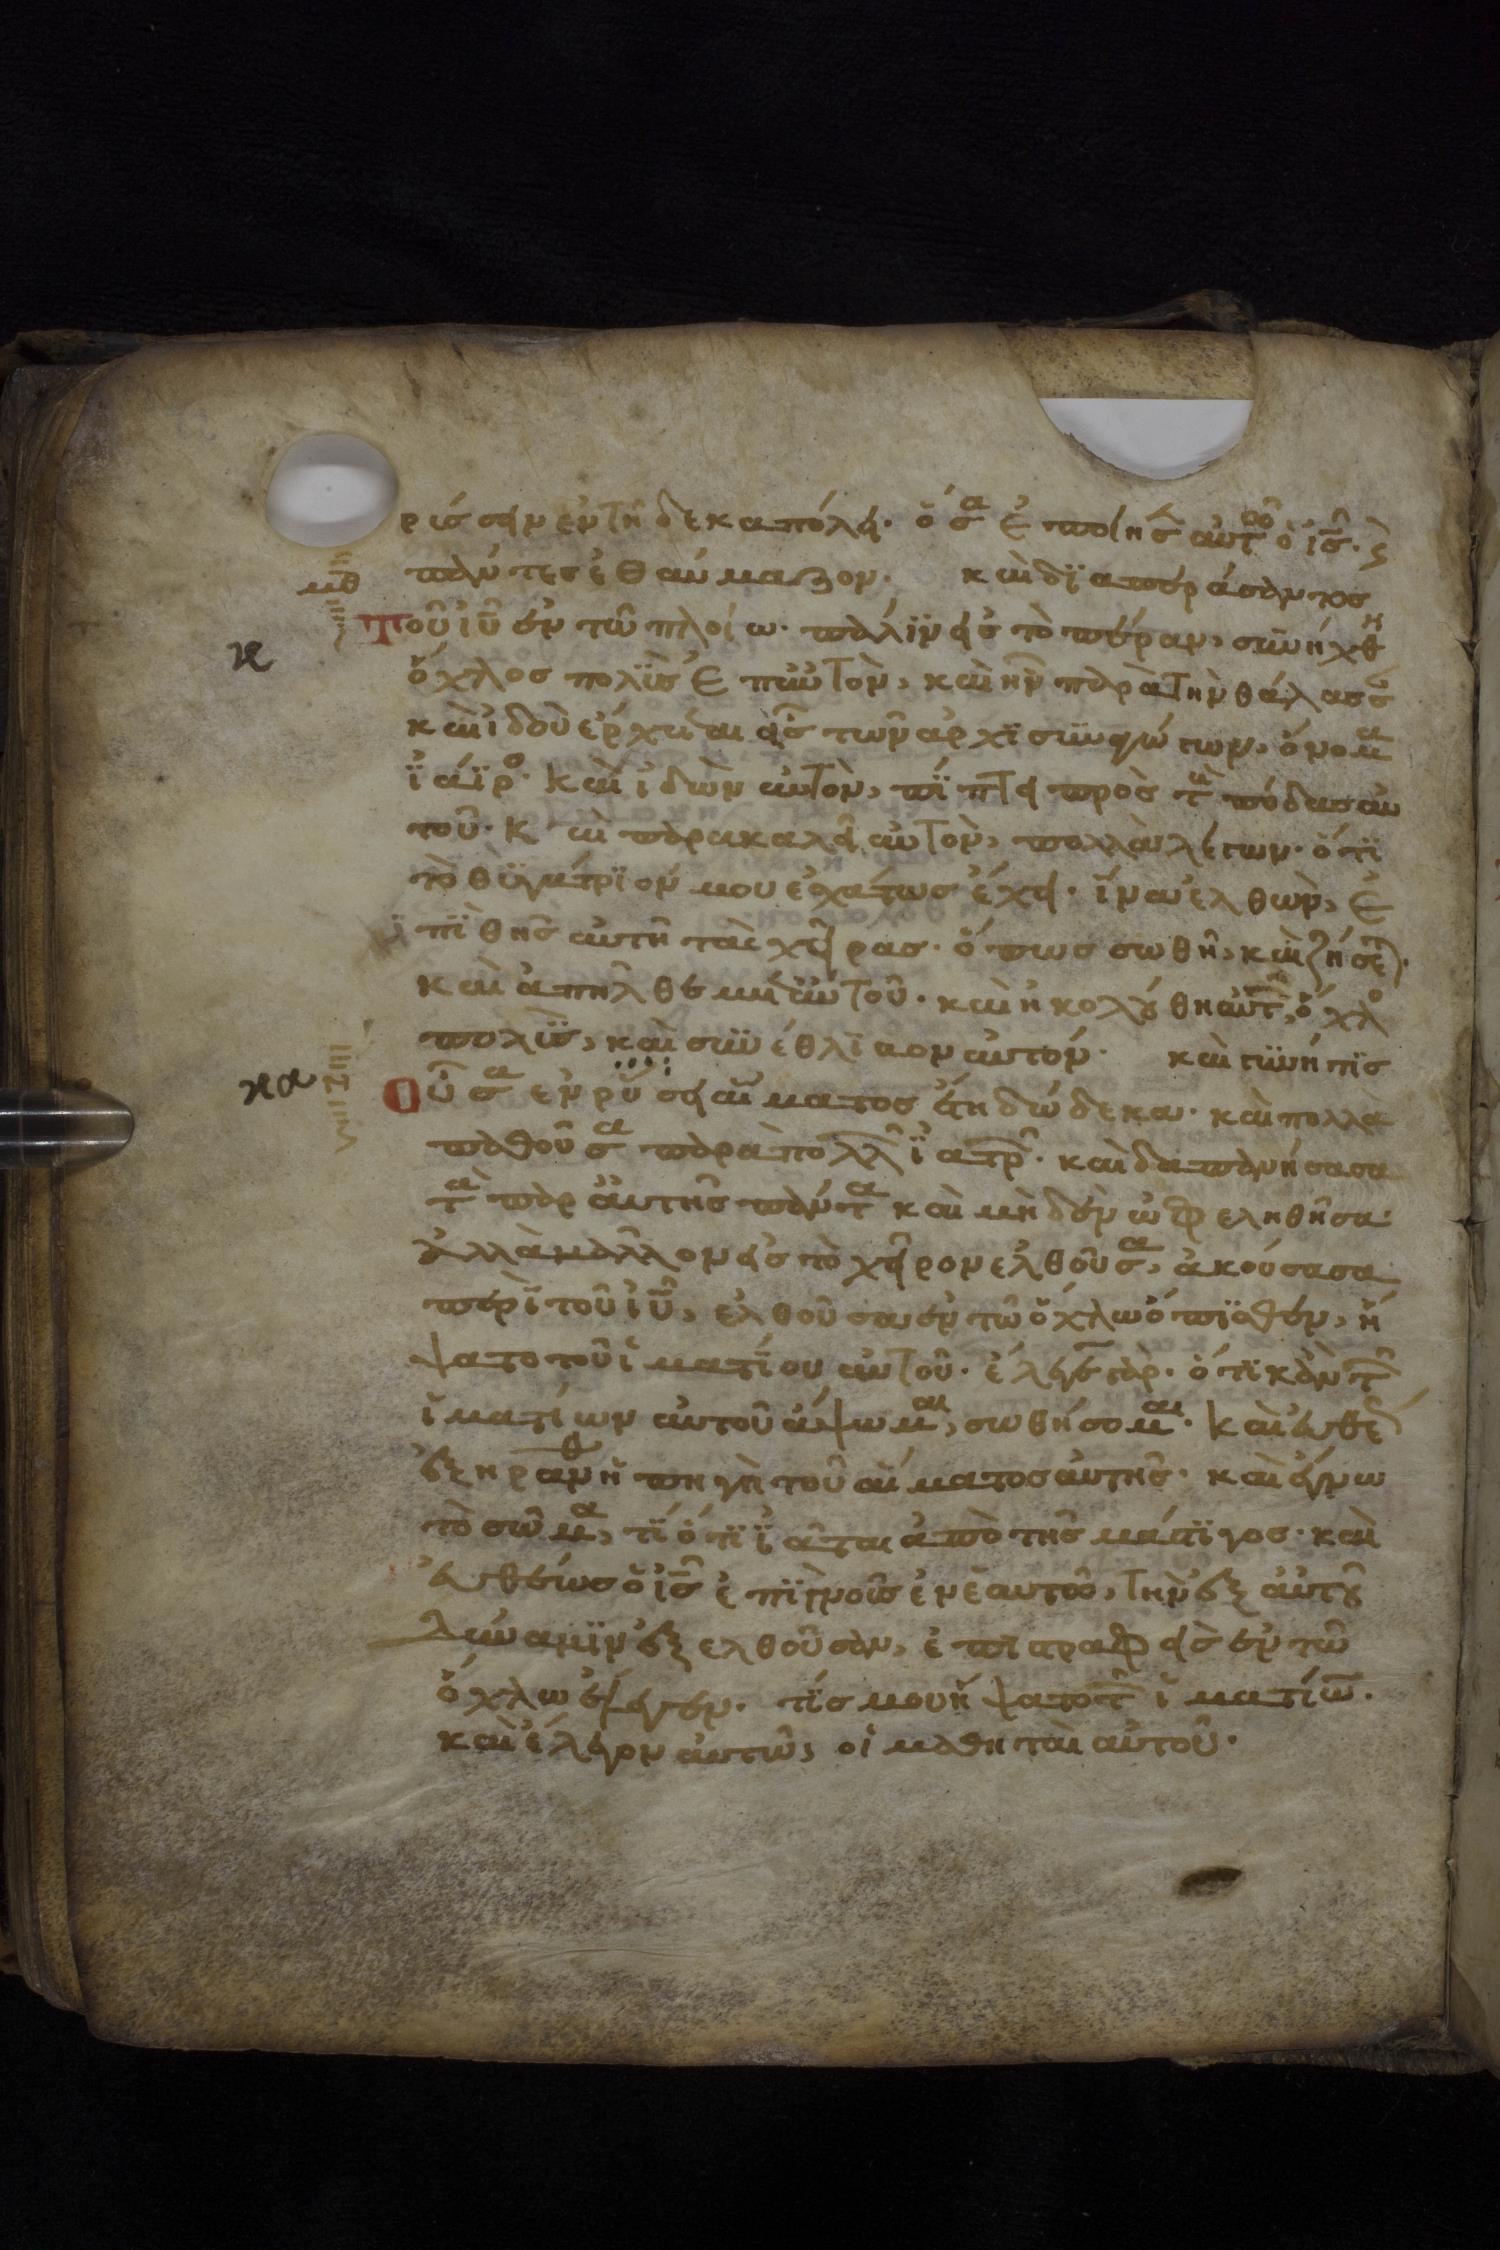 ρίσσειν ἐν τῆ δεκαπόλει· ὅσα ἐποίησ αὐτῶ ὁ ις· κ
πάντες ἐθαύμαζον· καὶ διαπεράσαντος
μθ
Τοῦ ιῦ ἐν τῶ πλοίω· πάλϊν εἰς τὸ πέραν, συνήχθη
κ
ὄχλος πολὺς ἐπαὐτὸν, καὶ ἦν παρὰ τὴν θάλασσ
καὶ ἰδοὺ ἔρχεται εἷς τῶν ἀρχϊσυναγώγων, ὀνόμα
ϊάϊρο· καὶ ἰδὼν αὐτὸν, πϊπτει πρὸς τ πόδας αὐ
τοῦ· καὶ παρακαλεῖ αὐτὸν, πολλὰ λέγων· ὅτϊ
τὸ θϋγάτρϊόν μου ἐσχάτως ἔχει· ἵνα ἐλθὼν, ἐ
πϊθῆς αὐτῆ τὰς χεῖρας· ὅπως σωθῆ, καὶ ζήσε
καὶ ἀπῆλθε μετ αὐτοῦ· καὶ ἠκολούθη αὐτ ὄχλο
πολὺς, καὶ συνέθλϊβον αὐτόν· καὶ γϋνή τϊς
κα
Οὖσα ἐν ῥύσει αἵματος ἔτη δώδεκα· καὶ πολλὰ
παθοῦσα παρὰ πολλ ϊατρ· καὶ δαπανήσασα
τὰ παρ αὐτῆς πάντα καὶ μηδὲν ὠφεληθῆσα·
ἀλλὰ μᾶλλον εἰς τὸ χεῖρον ἐλθοῦσα, ἀκούσασα
περὶ τοῦ ιῦ, ἐλθοῦσα ἐν τῶ ὄχλω ὄπϊσθεν, ἥ
ψατο τοῦ ἱματϊου αὐτοῦ· ἔλεγε γὰρ· ὅτϊ κἂν τ
ἱματίων αὐτοῦ ἅψωμαι, σωθήσομαι· καὶ εὐθε
ἐξηράνθη ἡ πηγὴ τοῦ αἵματος αὐτῆς· καὶ ἔγνω
τὸ σῶμα, τϊ ὅτϊ ϊᾶται ἀπὸ τῆς μάστϊγος· καὶ
εὐθέως ὁ ις ἐπϊγνοὺς ἐν ἑαυτῶ, τὴν ἐξ αὐτοῦ
δύναμϊν ἐξελθοῦσαν, ἐπϊστραφεὶς ἐν τῶ
ὄχλω ἔλεγεν· τϊς μου ἥψατο τ ἱματίων·
καὶ ἔλεγον αὐτῶ, οἱ μαθηταὶ αὐτοῦ·